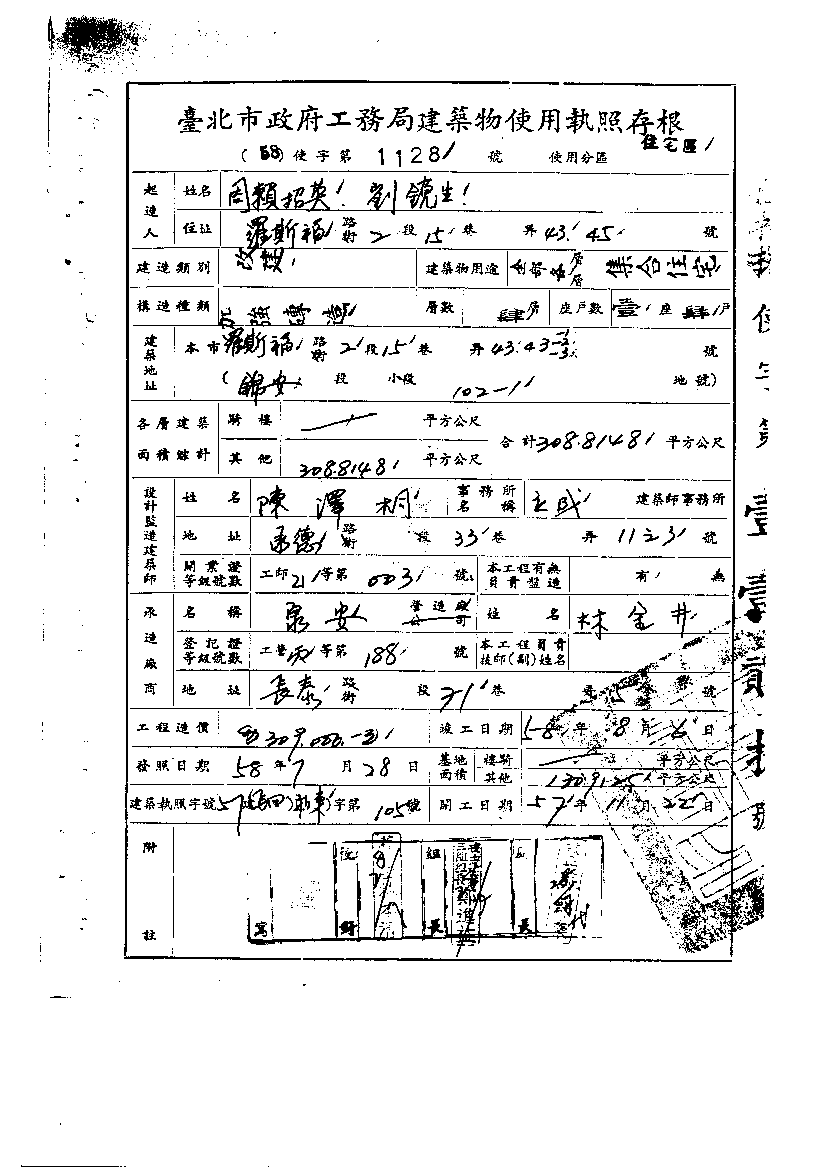 臺北市政府工務局建築物使用執照存根
(58)使字第 1128 號 使用分區 住宅區
起造人 姓名 周賴招英 劉鏡生
住址 羅斯福 路街 2 段 15 巷 弄 43. 45 號
建造類別 改建 建築物用途 層 集合住宅
構造種類 加強磚造 層數 肆層 座戶數 壹座 肆戶
建築地址 本市羅斯福 路街 2 段 15 巷 弄 43. 43 -2 -3 號
(錦安 段 小段 102-1 地號)
各層建築面積總計 騎樓 平方公尺 合計 308.8148 平方公尺
其他 308.8148 平方公尺
設計監造建築師 姓名 陳澤桐 事務所名稱 建築師事務所
地址 承德 路街 段 33 巷 弄 11之3 號
開業證等級號數 工師 等第 003 號 本工程有無負責監造 有 無
承造廠商 名稱 泉安 營造廠公司 姓名 林金井
登記證等級號數 工營丙等第 188 號 本工程負責技師(副)姓名
地址 長泰 路街 段 31 巷 5 號
工程造價 309,000 竣工日期 58 年 8 月 日
發照日期 58 年 7 月 28 日 基地面積 樓騎 平方公尺
其他 130.9125 平方公尺
建築執照字號 57 字第 105 號 開工日期 57 年 11 月 22 日
附註
組長